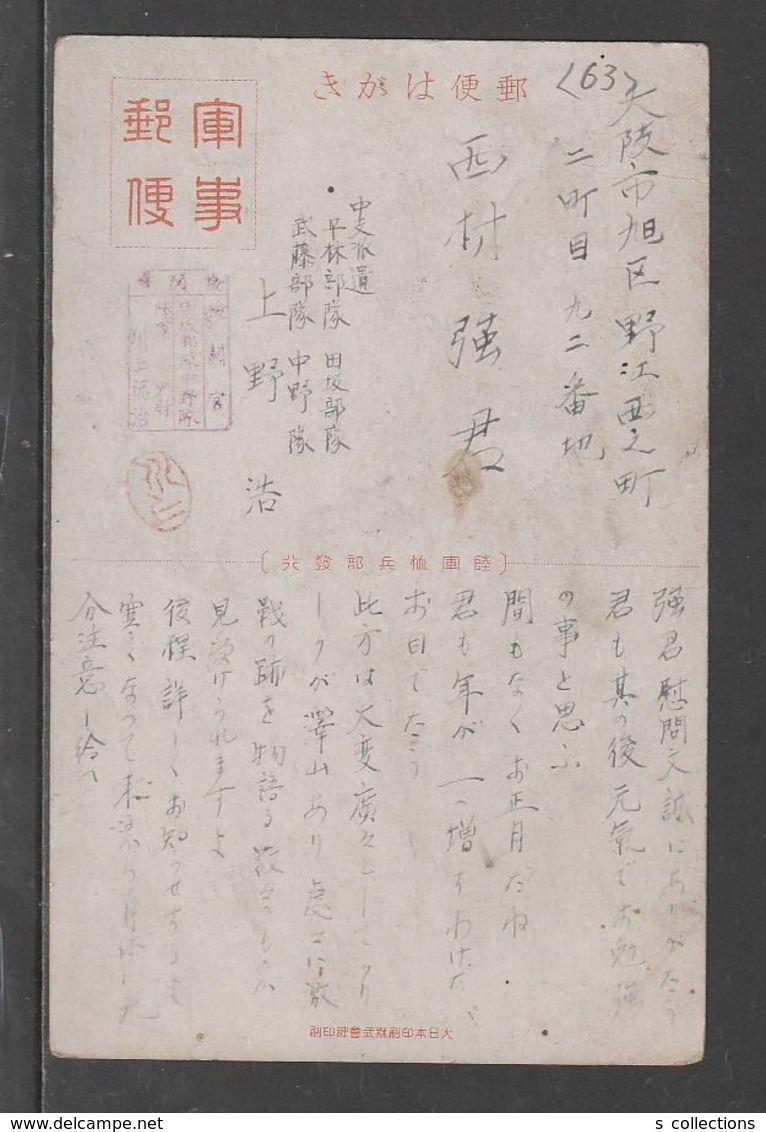 郵便はがき
軍事郵便
〈63〉
大阪市旭区野江西之町
二町目九二番地
西村強君
中支派遣
平林部隊 田坂部隊
武藤部隊 中野隊
上野浩
検閲官
川上福治
〔陸軍恤兵部發行〕
強君慰問文誠にありがたう
君も其の後元氣でお勉強
の事と思ふ
間もなくお正月だね
君も年が一つ増すわけだ
お目でたう
此方は大変廣々としてをり
澤山あり處々に激
戰の跡を物語る
見受けられますよ
後程詳しくお知らせするよ
寒くなつて
分注意し給へ
大日本印刷株式會社印刷
s collections